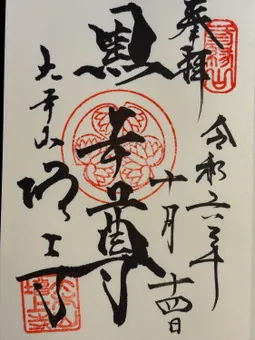 奉拝
令和六年
十月十四日
黒本尊
大本山
増上寺